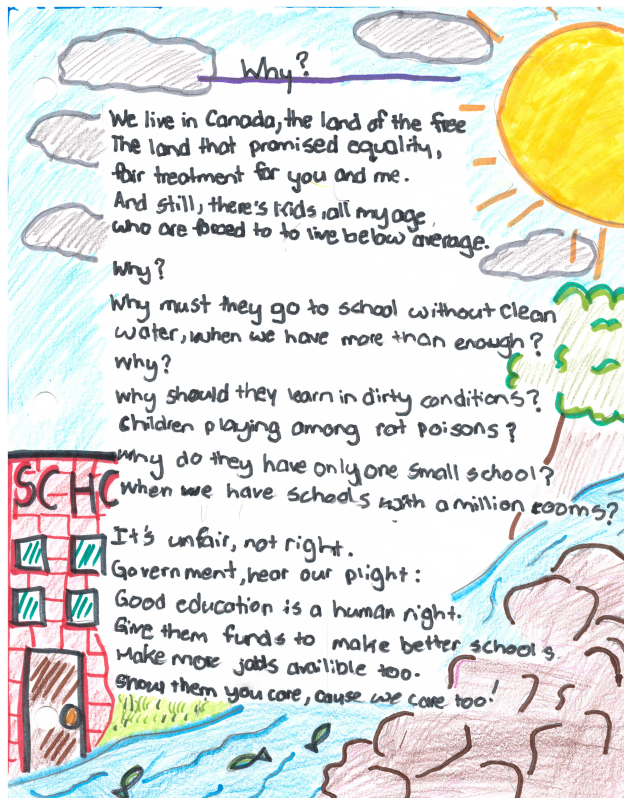 Why?
We live in Canada, the land of the free
The land that promised equality,
fair treatment for you and me.
And still, there's kids, all my age,
who are forced to to live below average.
Why?
Why must they go to school without clean
water, when we have more than enough?
Why?
why should they learn in dirty conditions?
Children playing among rat poisons?
Why do they have only one small school?
When we have schools with a million rooms?
It's unfair, not right.
Government, hear our plight:
Good education is a human right.
Give them funds to make better schools.
Make more jobs availible too.
Show them you care, cause we care too!
SCHO